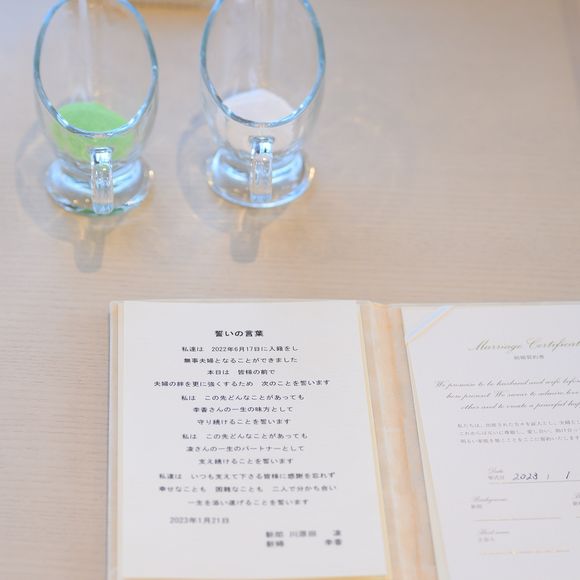 誓いの言葉
私達は 2022年6月17日に入籍をし
無事夫婦となることができました
本日は 皆様の前で
夫婦の絆を更に強くするため 次のことを誓います
私は この先どんなことがあっても
幸香さんの一生の味方として
守り続けることを誓います
私は この先どんなことがあっても
凌さんの一生のパートナーとして
支え続けることを誓います
私達は いつも支えて下さる皆様に感謝を忘れず
幸せなことも 困難なことも 二人で分かち合い
一生を添い遂げることを誓います
2023年1月21日
新郎 川原田 凌
新婦 幸香
Marriage Certificat
結婚誓約書
We promise to be husband and wife befor
here present. We swear to admire
other and to create a peaceful
Date
挙式日 2023 . 1
Bridegroom
新郎
立会人